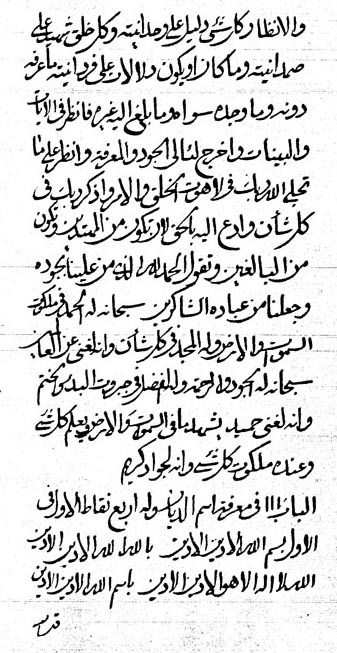 والانظار وكل شئ دليل على وحدانيته وكل خلق شهيد على
صمدانيته وما كان او يكون دلالات على فردانيته ما عرفه
دونه وما وجده سواه وما بلغ اليه غيره فانظر في الايات
والبينات واخرج لئالي الجود والمعرفة وانظر على ما
تجلى الله ربك في لاهوت الخلق والامر واذكر ربك في
كل شأن وادع اليه بالحق لان تكون من المهتدين وتكون
من البالغين وتقول الحمد لله الذي من علينا بجوده
وجعلنا من عباده الشاكرين سبحانه له الحمد في ملكوت
السموات والارض وله المجد في كل شأن وانه لغني عن العالمين
سبحانه له الجود والرحمة وله الفضل في جبروت البدء والختم
وانه لغني حميد يشهد ما في السموات والارض ويعلم كل شئ
وعنده ملكوت كل شئ وانه لجواد كريم
الباب ااا في معرفة اسم الديان وله اربع نقاط الاول في
الاول بسم الله الادين الادين بالله الله الادين الادين
الله لا اله الا هو الادين الادين باسم الله الادين الادين